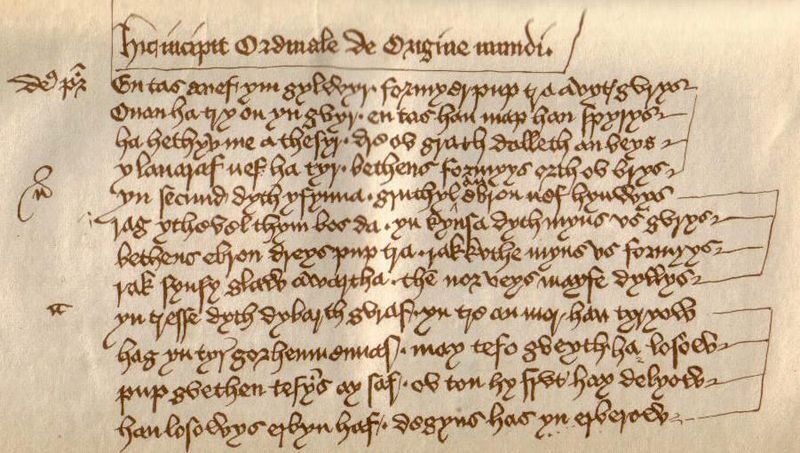 hic incipit Ordinale de Origine mundi.
de9 pr̄
En tas a nef y m gylwyr. formyer pup tra a vyt gvrys
Onan ha try on yn gvyr. en tas han map han spyrys
ha hethyv me a thesyr. dre ov grath dalleth an beys
y lauaraf nef ha tyr. bethens formyys orth ov brys
yn secund dyth y fynna. gruthyl ebron nef hynwys
rag ythevel thym bos da. yn kynsa dyth myns vs gvrys
bethens ebron dreys pup tra. rak kuthe myns vs formyys
rak synsy glaw awartha. the nor veys may fe dyllys
yn tresse dyth dybarth gvraf. yn tre an mor han tyryow
hag yn tyr gorhenmennaf. may tefo gveyth ha losow
pup gvethen tefyns ay saf. ov ton hy frvt hay delyow
han losowys erbyn haf. degyns has yn erberow